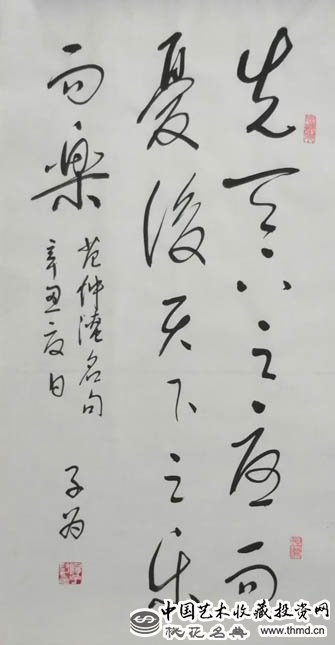 先天下之憂而
憂後天下之乐
而樂
范仲淹名句
辛丑夏日
子为
中国艺术收藏投资网
桃花名典 www.thmd.cn